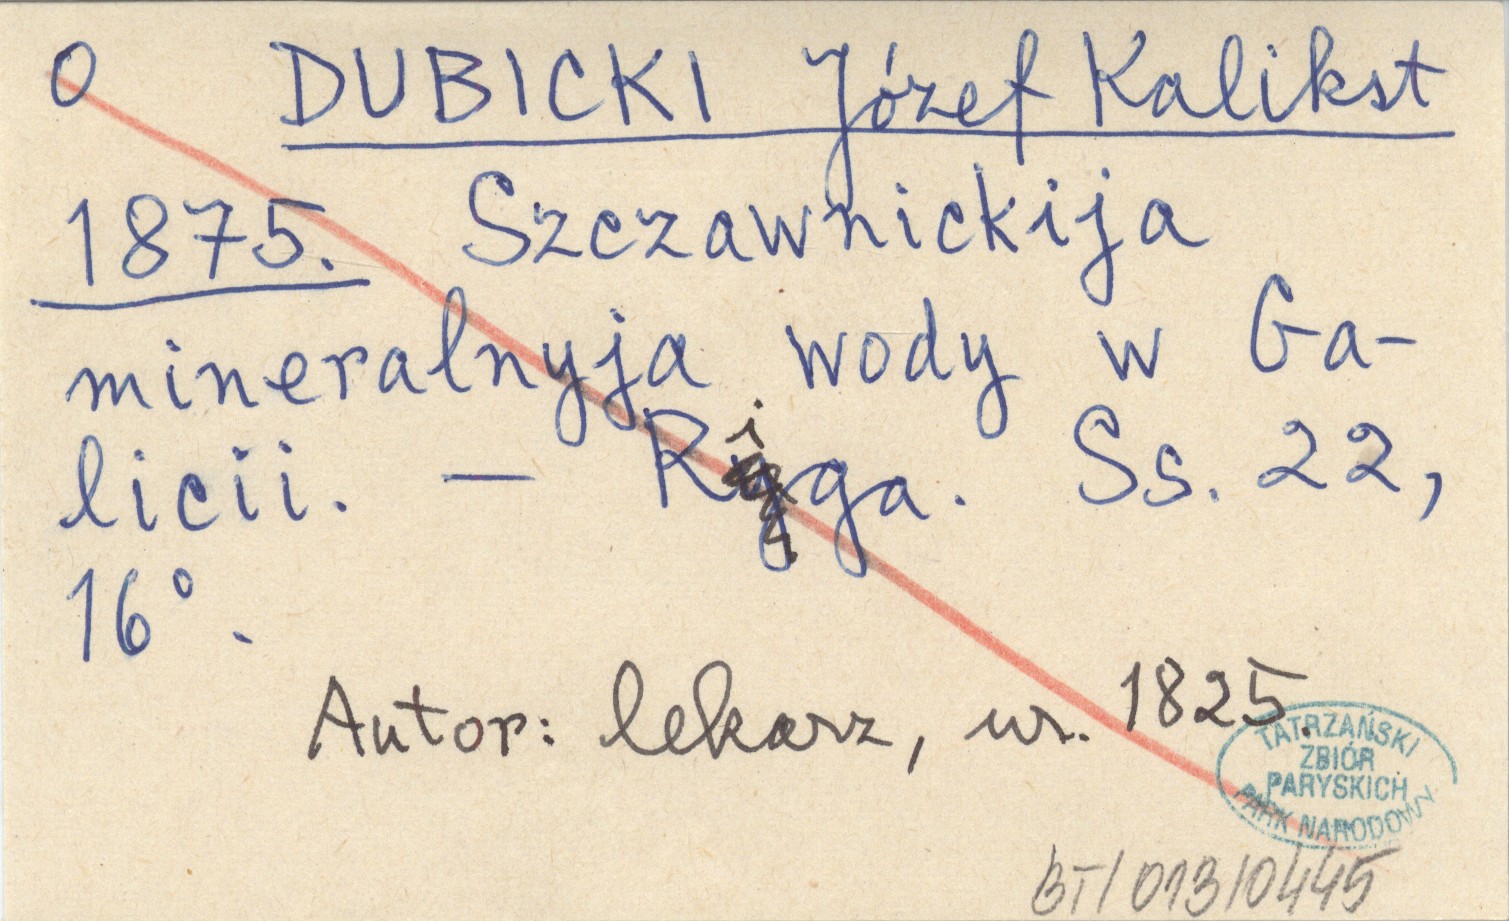 O DUBICKI Józef Kalikst
1875. Szczawnickija
mineralnyja wody w Ga-
licii. — Riga. Ss. 22,
16°.
Autor: lekarz, ur. 1825.
TATRZAŃSKI
ZBIÓR
PARYSKICH
PARK NARODOWY
BT/013/0445